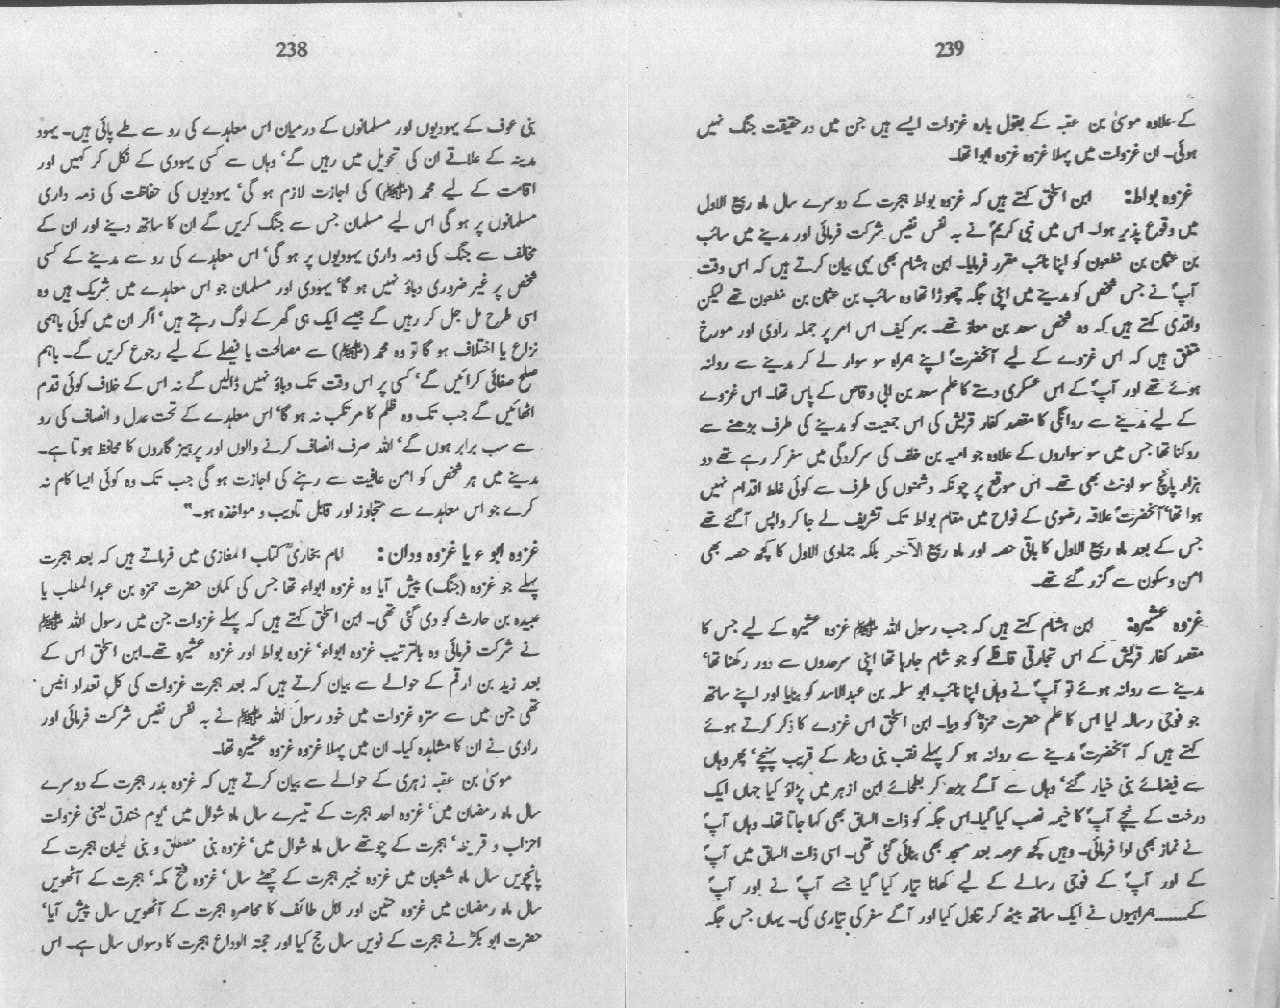 238
بنی عوف کے یہودیوں اور مسلمانوں کے درمیان اس معاہدے کی رو سے طے پائی ہیں۔ یہود
مدینہ کے علاقے ان کی تحویل میں رہیں گے‘ وہاں سے کسی یہودی کے نکل کر کہیں اور
اقامت کے لیے محمد (ﷺ) کی اجازت لازم ہو گی‘ یہودیوں کی حفاظت کی ذمہ داری
مسلمانوں پر ہو گی اس لیے مسلمان جس سے جنگ کریں گے ان کا ساتھ دینے اور ان کے
مخالف سے جنگ کی ذمہ داری یہودیوں پر ہو گی‘ اس معاہدے کی رو سے مدینے کے کسی
شخص پر غیر ضروری دباؤ نہیں ہو گا‘ یہودی اور مسلمان جو اس معاہدے میں شریک ہیں وہ
اسی طرح مل جل کر رہیں گے جیسے ایک ہی گھر کے لوگ رہتے ہیں‘ اگر ان میں کوئی باہمی
نزاع یا اختلاف ہو گا تو وہ محمد (ﷺ) سے مصالحت یا فیصلے کے لیے رجوع کریں گے۔ باہم
صلح صفائی کرائیں گے‘ کسی پر اس وقت تک دباؤ نہیں ڈالیں گے نہ اس کے خلاف کوئی قدم
اٹھائیں گے جب تک وہ ظلم کا مرتکب نہ ہو گا‘ اس معاہدے کے تحت عدل و انصاف کی رو
سے سب برابر ہوں گے‘ اللہ صرف انصاف کرنے والوں اور پرہیز گاروں کا محافظ ہوتا ہے۔
مدینے میں ہر شخص کو امن عافیت سے رہنے کی اجازت ہو گی جب تک وہ کوئی ایسا کام نہ
کرے جو اس معاہدے سے متجاوز اور قابل تادیب و مواخذہ ہو۔“
غزوہ ابو ء یا غزوہ ودان: امام بخاریؒ کتاب المغازی میں فرماتے ہیں کہ بعد ہجرت
پہلے جو غزوہ (جنگ) پیش آیا وہ غزوہ ابواء تھا جس کی کمان حضرت حمزہ بن عبدالمطلب یا
عبیدہ بن حارث کو دی گئی تھی۔ ابن اسحٰق کہتے ہیں کہ پہلے غزوات جن میں رسول اللہ ﷺ
نے شرکت فرمائی وہ بالترتیب غزوہ ابواء‘ غزوہ بواط اور غزوہ عشیرہ تھے۔ ابن اسحٰق اس کے
بعد زید بن ارقم کے حوالے سے بیان کرتے ہیں کہ بعد ہجرت غزوات کی کل تعداد انیس
تھی جن میں سے سترہ غزوات میں خود رسول اللہ ﷺ نے بہ نفس نفیس شرکت فرمائی اور
راوی نے ان کا مشاہدہ کیا۔ ان میں پہلا غزوہ غزوہ عشیرہ تھا۔
موسیٰ بن عقبہ زہری کے حوالے سے بیان کرتے ہیں کہ غزوہ بدر ہجرت کے دوسرے
سال ماہ رمضان میں‘ غزوہ احد ہجرت کے تیسرے سال ماہ شوال میں ‘یوم خندق یعنی غزوات
احزاب و قریظہ‘ ہجرت کے چوتھے سال ماہ شوال میں‘ غزوہ بنی مصطلق و بنی لحیان ہجرت کے
پانچویں سال ماہ شعبان میں غزوہ خیبر ہجرت کے چھٹے سال‘ غزوہ فتح مکہ‘ ہجرت کے آٹھویں
سال ماہ رمضان میں غزوہ حنین اور اہل طائف کا محاصرہ ہجرت کے آٹھویں سال پیش آیا‘
حضرت ابو بکرؓ نے ہجرت کے نویں سال حج کیا اور حجتہ الوداع ہجرت کا دسواں سال ہے۔ اس
239
کے علاوہ موسیٰ بن عقبہ کے بقول بارہ غزوات ایسے ہیں جن میں در حقیقت جنگ نہیں
ہوئی۔ ان غزوات میں پہلا غزوہ غزوہ ابوا تھا۔
غزوہ بواط: ابن اسحٰق کہتے ہیں کہ غزوہ بواط ہجرت کے دوسرے سال ماہ ربیع الاول
میں وقوع پذیر ہوا۔ اس میں نبی کریمؐ نے بہ نفس نفیس شرکت فرمائی اور مدینے میں سائب
بن عثمان بن مظعون کو اپنا نائب مقرر فرمایا۔ ابن ہشام بھی یہی بیان کرتے ہیں کہ اس وقت
آپؐ نے جس شخص کو مدینے میں اپنی جگہ چھوڑا تھا وہ سائب بن عثمان بن مظعون تھے لیکن
واقدی کہتے ہیں کہ وہ شخص سعد بن معاذ تھے۔ بہر کیف اس امر پر جملہ راوی اور مورخ
متفق ہیں کہ اس غزوے کے لیے آنحضرتؐ اپنے ہمراہ سو سوار لے کر مدینے سے روانہ
ہوئے تھے اور آپؐ کے اس عسکری دستے کا علم سعد بن ابی وقاص کے پاس تھا۔ اس غزوے
کے لیے مدینے سے روانگی کا مقصد کفار قریش کی اس جمعیت کو مدینے کی طرف بڑھنے سے
روکنا تھا جس میں سو سواروں کے علاوہ جو امیہ بن خلف کی سرکردگی میں سفر کر رہے تھے دو
ہزار پانچ سو اونٹ بھی تھے۔ اس موقع پر چونکہ دشمنوں کی طرف سے کوئی غلط اقدام نہیں
ہوا تھا‘آنحضرتؐ علاقہ رضوی کے نواح میں مقام بواط تک تشریف لے جا کر واپس آ گئے تھے
جس کے بعد ماہ ربیع الاول کا باقی حصہ اور ماہ ربیع الآخر بلکہ جمادی الاول کا کچھ حصہ بھی
امن و سکون سے گزر گئے تھے۔
غزوہ عشیرہ: ابن ہشام کہتے ہیں کہ جب رسول اللہ ﷺ غزوہ عشیرہ کے لیے جس کا
مقصد کفار قریش کے اس تجارتی قافلے کو جو شام جا رہا تھا اپنی سرحدوں سے دور رکھنا تھا‘
مدینے سے روانہ ہوئے تو آپؐ نے وہاں اپنا نائب ابو سلمہ بن عبدالاسد کو بنایا اور اپنے ساتھ
جو فوجی رسالہ لیا اس کا علم حضرت حمزہؓ کو دیا۔ ابن اسحٰق اس غزوے کا ذکر کرتے ہوئے
کہتے ہیں کہ آنحضرتؐ مدینے سے روانہ ہو کر پہلے نقب بنی دینار کے قریب پہنچے‘ پھر وہاں
سے فیضائے بنی خیار گئے‘ وہاں سے آگے بڑھ کر بطحائے ابن ازہر میں پڑاؤ کیا جہاں ایک
درخت کے نیچے آپؐ کا خیمہ نصب کیا گیا۔ اس جگہ کو ذات الساق بھی کہا جاتا تھا۔ وہاں آپؐ
نے نماز بھی ادا فرمائی۔ وہیں کچھ عرصہ بعد مسجد بھی بنائی گئی تھی۔ اسی ذات الساق میں آپؐ
کے اور آپؐ کے فوجی رسالے کے لیے کھانا تیار کیا گیا جسے آپؐ نے اور آپؐ
کے......ہمراہیوں نے ایک ساتھ بیٹھ کر تناول کیا اور آگے سفر کی تیاری کی۔ یہاں جس جگہ